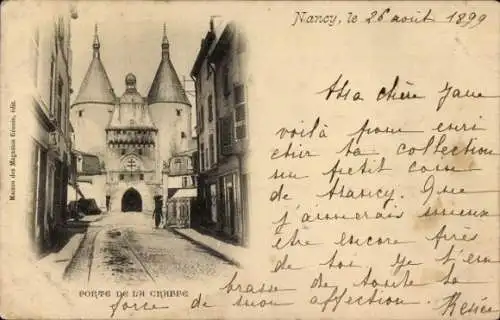 Nancy, le 26 août 1899
Ma chère Jane
voilà pour enri
chir ta collection
un petit coin
de Nancy. Que
j'aimerais mieux
être encore près
de toi Je t'em
brasse de toute la
force de mon affection
PORTE DE LA CRAFFE